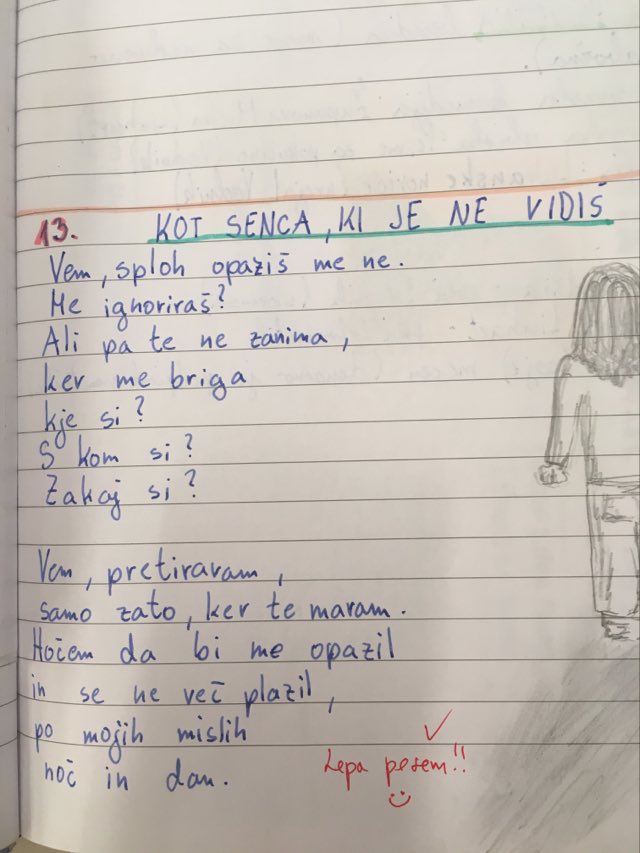 13. KOT SENCA, KI JE NE VIDIŠ
Vem, sploh opaziš me ne.
Me ignoriraš?
Ali pa te ne zanima,
ker me briga
kje si?
S kom si?
Zakaj si?
Vem, pretiravam,
samo zato, ker te maram.
Hočem da bi me opazil
in se ne več plazil,
po mojih mislih
noč in dan.
Lepa pesem!!